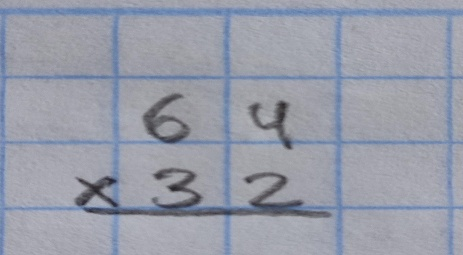 64
× 32